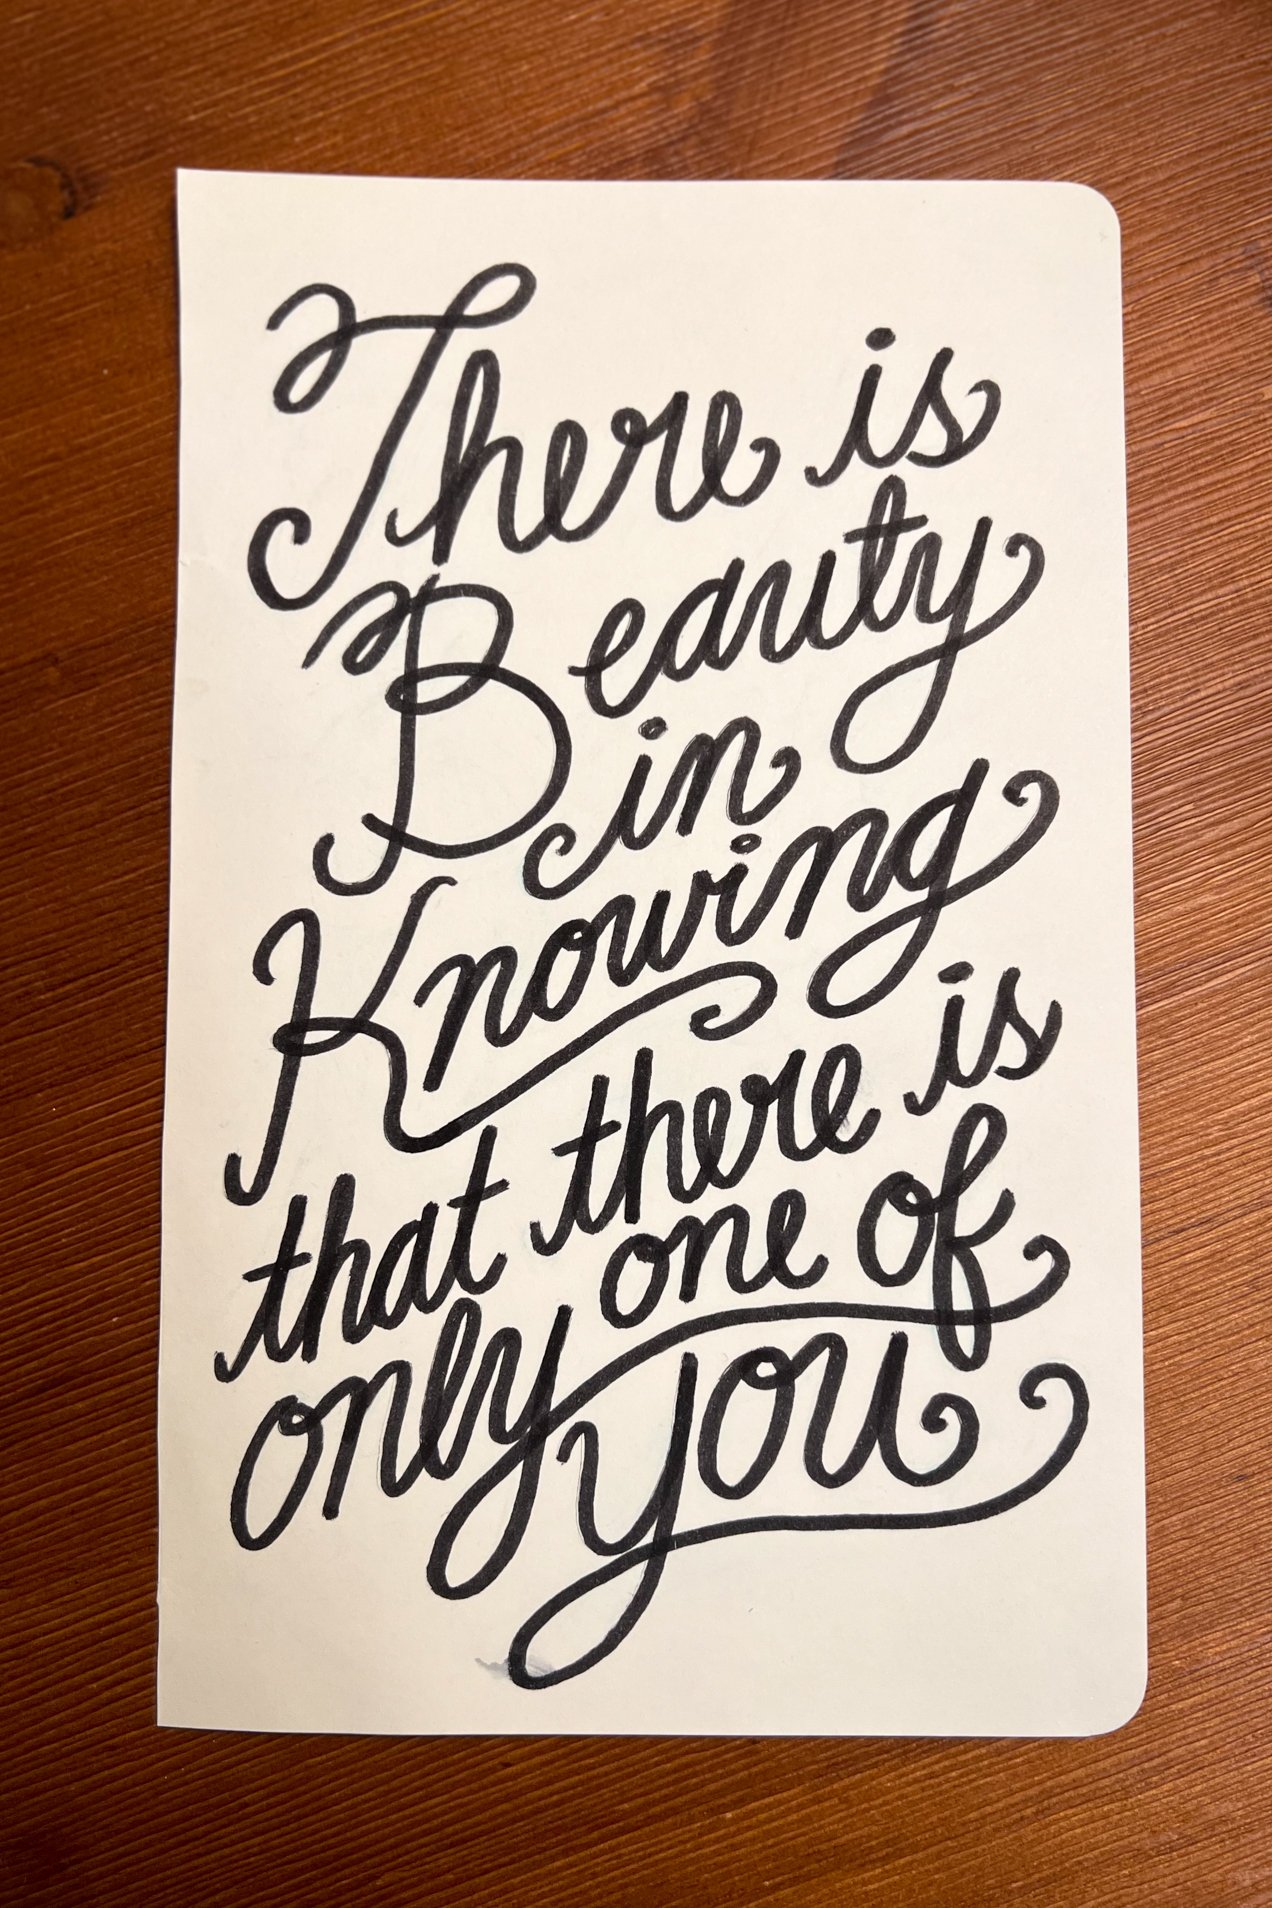 There is
Beauty
in
Knowing
that there is
only one of
you